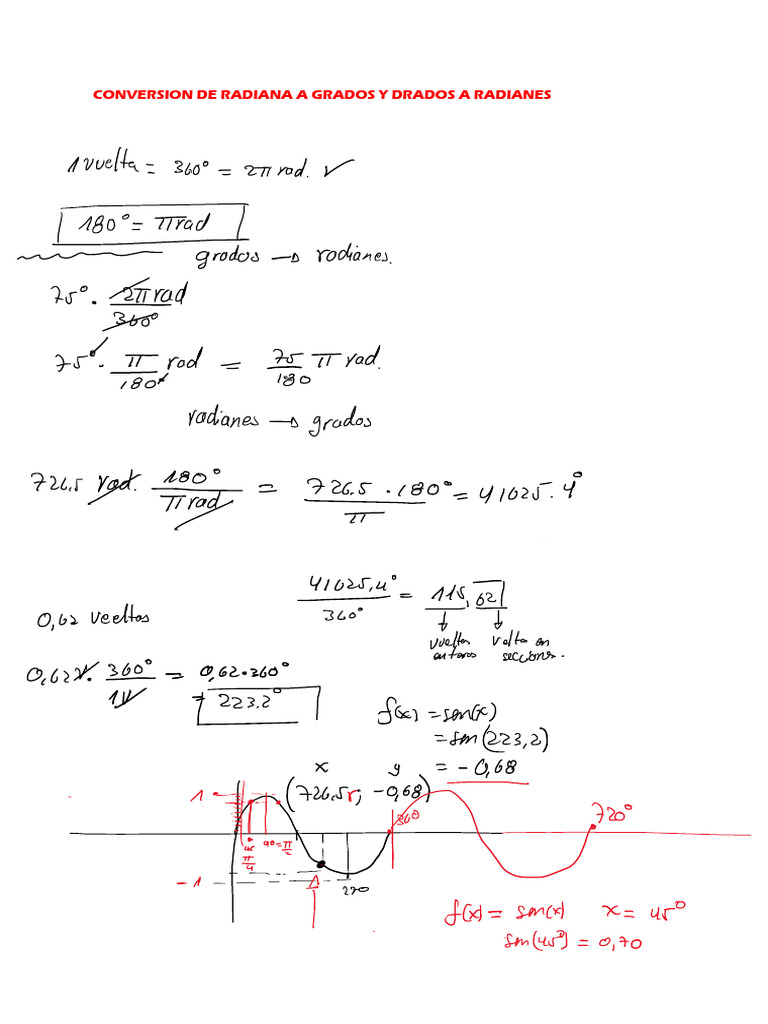 CONVERSION DE RADIANA A GRADOS Y DRADOS A RADIANES
1 vuelta = 360° = 2π rad. ✓
180° = π rad
grados → radianes.
75° · 2π rad / 360°
75° · π / 180° rad = 75 / 180 π rad.
radianes → grados
726.5 rad. 180° / π rad = 726.5 · 180° / π = 41625.4°
41625,4° / 360° = 115,62
0,62 vueltas
vueltas enteras
vuelta en secciones.
0,62 v. 360° / 1v = 0,62·360°
= 223.2°
f(x) = sen(x)
= sen(223,2)
= -0,68
x y
(726.5r; -0,68)
1
360
720°
45
π/4
90 = π/2
-1
270
f(x) = sen(x) x = 45°
sen(45°) = 0,70